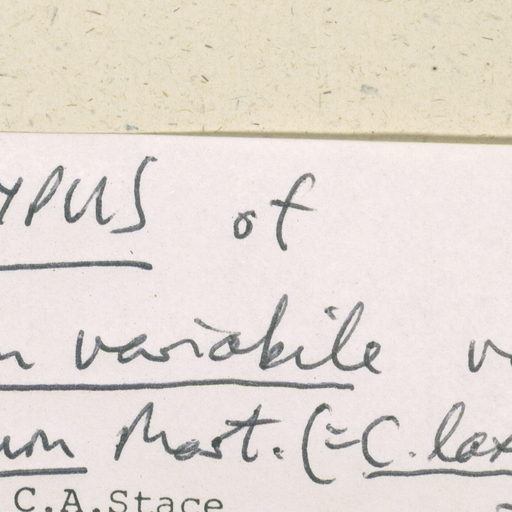 YPUS of
variabile
Mart. (=C. lax
C.A.Stace